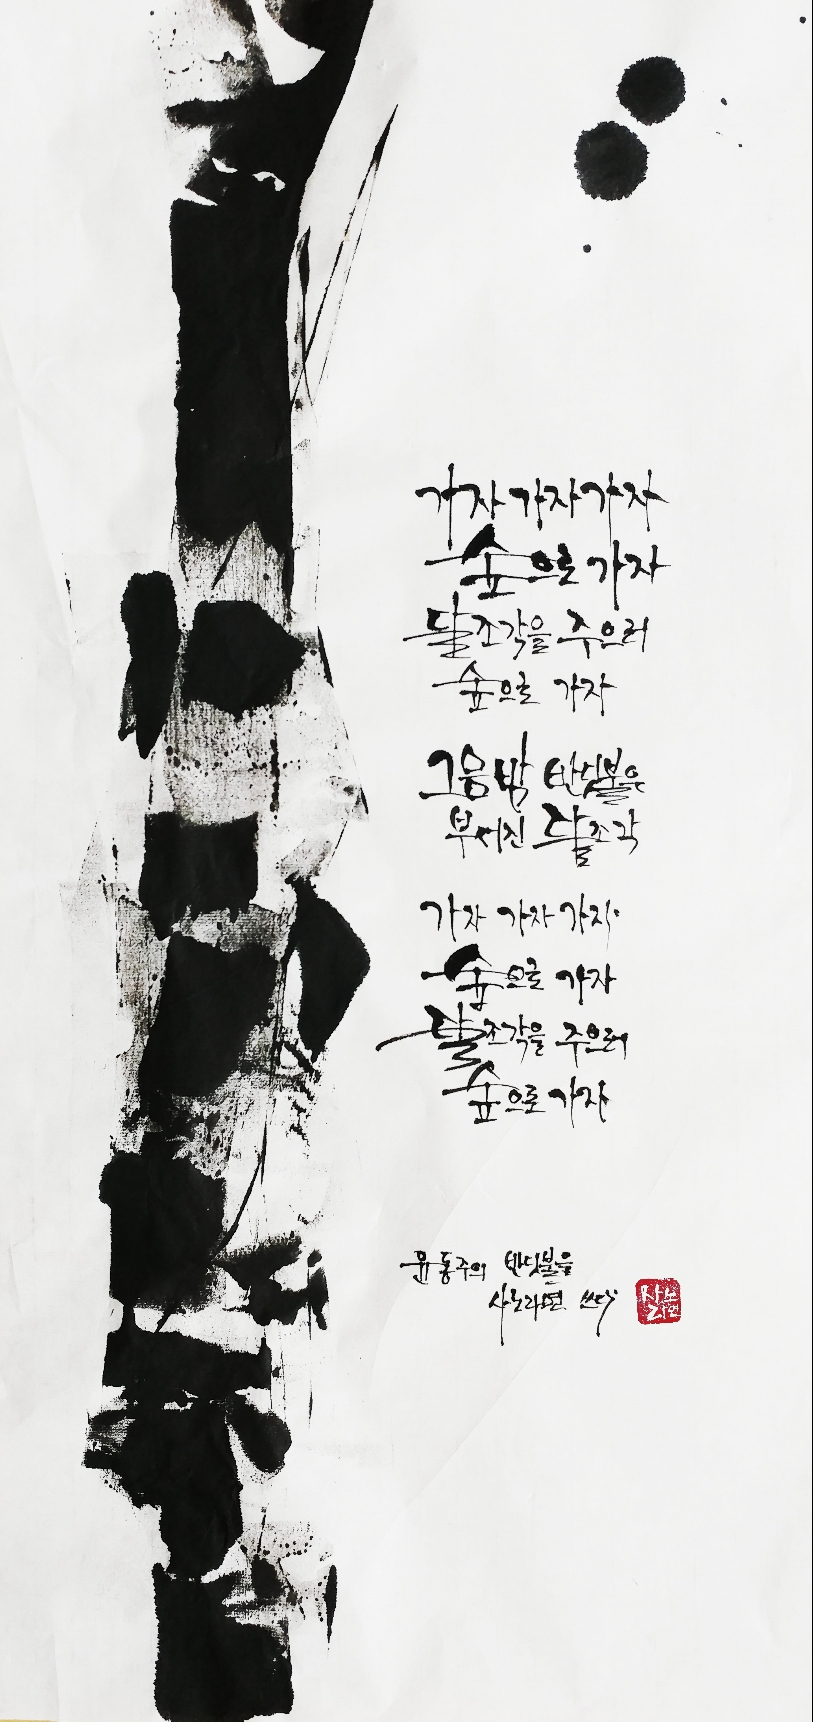 가자 가자 가자
숲으로 가자
달조각을 주으러
숲으로 가자
그믐밤 반딧불은
부서진 달조각
가자 가자 가자
숲으로 가자
달조각을 주으러
숲으로 가자
윤동주의 반딧불을
쓰다